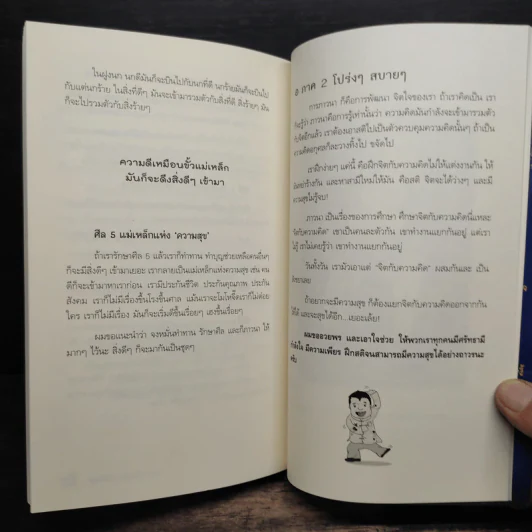 ในฝูงนก นกดีมันก็จะบินไปกับนกที่ดี นกร้ายมันก็จะบินไป
กับแต่นกร้าย ในสิ่งที่ดีๆ มันจะเข้ามารวมตัวกับสิ่งที่ดี สิ่งร้ายๆ มัน
ก็จะไปรวมตัวกับสิ่งร้ายๆ
ความดีเหมือนขั้วแม่เหล็ก
มันก็จะดึงสิ่งดีๆ เข้ามา
ศีล 5 แม่เหล็กแห่ง "ความสุข"
ถ้าเรารักษาศีล 5 แล้วเราก็ทำทาน ทำบุญช่วยเหลือคนอื่นๆ
ก็จะมีสิ่งดีๆ เข้ามาเยอะ เรากลายเป็นแม่เหล็กแห่งความสุข เช่น คน
ดีก็จะเข้ามาหาเราก่อน เรามีประกันชีวิต ประกันคุณภาพ ประกัน
สังคม เราก็ไม่มีเรื่องขึ้นโรงขึ้นศาล แม้นเราจะไม่โกรธเราก็ไม่ค่อย
ใคร เราก็ไม่มีเรื่อง มันก็จะเริ่มดีขึ้นเรื่อยๆ เฮงขึ้นเรื่อยๆ
ผมขอแนะนำว่า จงหมั่นทำทาน รักษาศีล และก็ภาวนา ให้
มากๆ ไว้นะ สิ่งดีๆ ก็จะมากันเป็นชุดๆ
ภาค 2 โปร่งๆ สบายๆ
การภาวนา ก็คือการพัฒนา จิตใจของเรา ถ้าเราคิดเป็น เรา
รู้ว่า ภาวนาคือการรู้เท่านั้นว่า ความคิดมันกำลังจะเข้ามารวมตัว
จิตอีกแล้ว เราต้องเอาสติไปเป็นตัวควบคุมความคิดนั้นๆ ถ้าเป็น
คิดอกุศลก็ละวางทิ้งไป ขจัดไป
เราฝึกง่ายๆ แค่นี้ คือฝึกจิตกับความคิดไม่ให้แต่งงานกัน ให้
หย่าร้างกัน และหาสามีใหม่ให้มัน คือสติ จิตจะได้ว่างๆ และมี
ความสุขไม่รู้จบ!
ภาวนา เป็นเรื่องของการศึกษา ศึกษาจิตกับความคิดนี่แหละ
"จิตกับความคิด" เขาเป็นคนละตัวกัน เขาทำงานแยกกันอยู่ แต่เรา
ไม่รู้ เราไม่เคยรู้ว่า เขาทำงานแยกกันอยู่
วันทั้งวัน เรามัวเอาแต่ "จิตกับความคิด" ผสมกันละ เป็น
ถ้าอยากจะมีความสุข ก็ต้องแยกจิตกับความคิดออกจากกัน
ให้ได้ และจะสุขได้อีก...เยอะเลย!
ผมขออวยพร และเอาใจช่วย ให้พวกเราทุกคนมีศรัทธามี
กำลังใจ มีความเพียร ฝึกสติจนสามารถมีความสุขได้อย่างถาวรนะ
ครับ